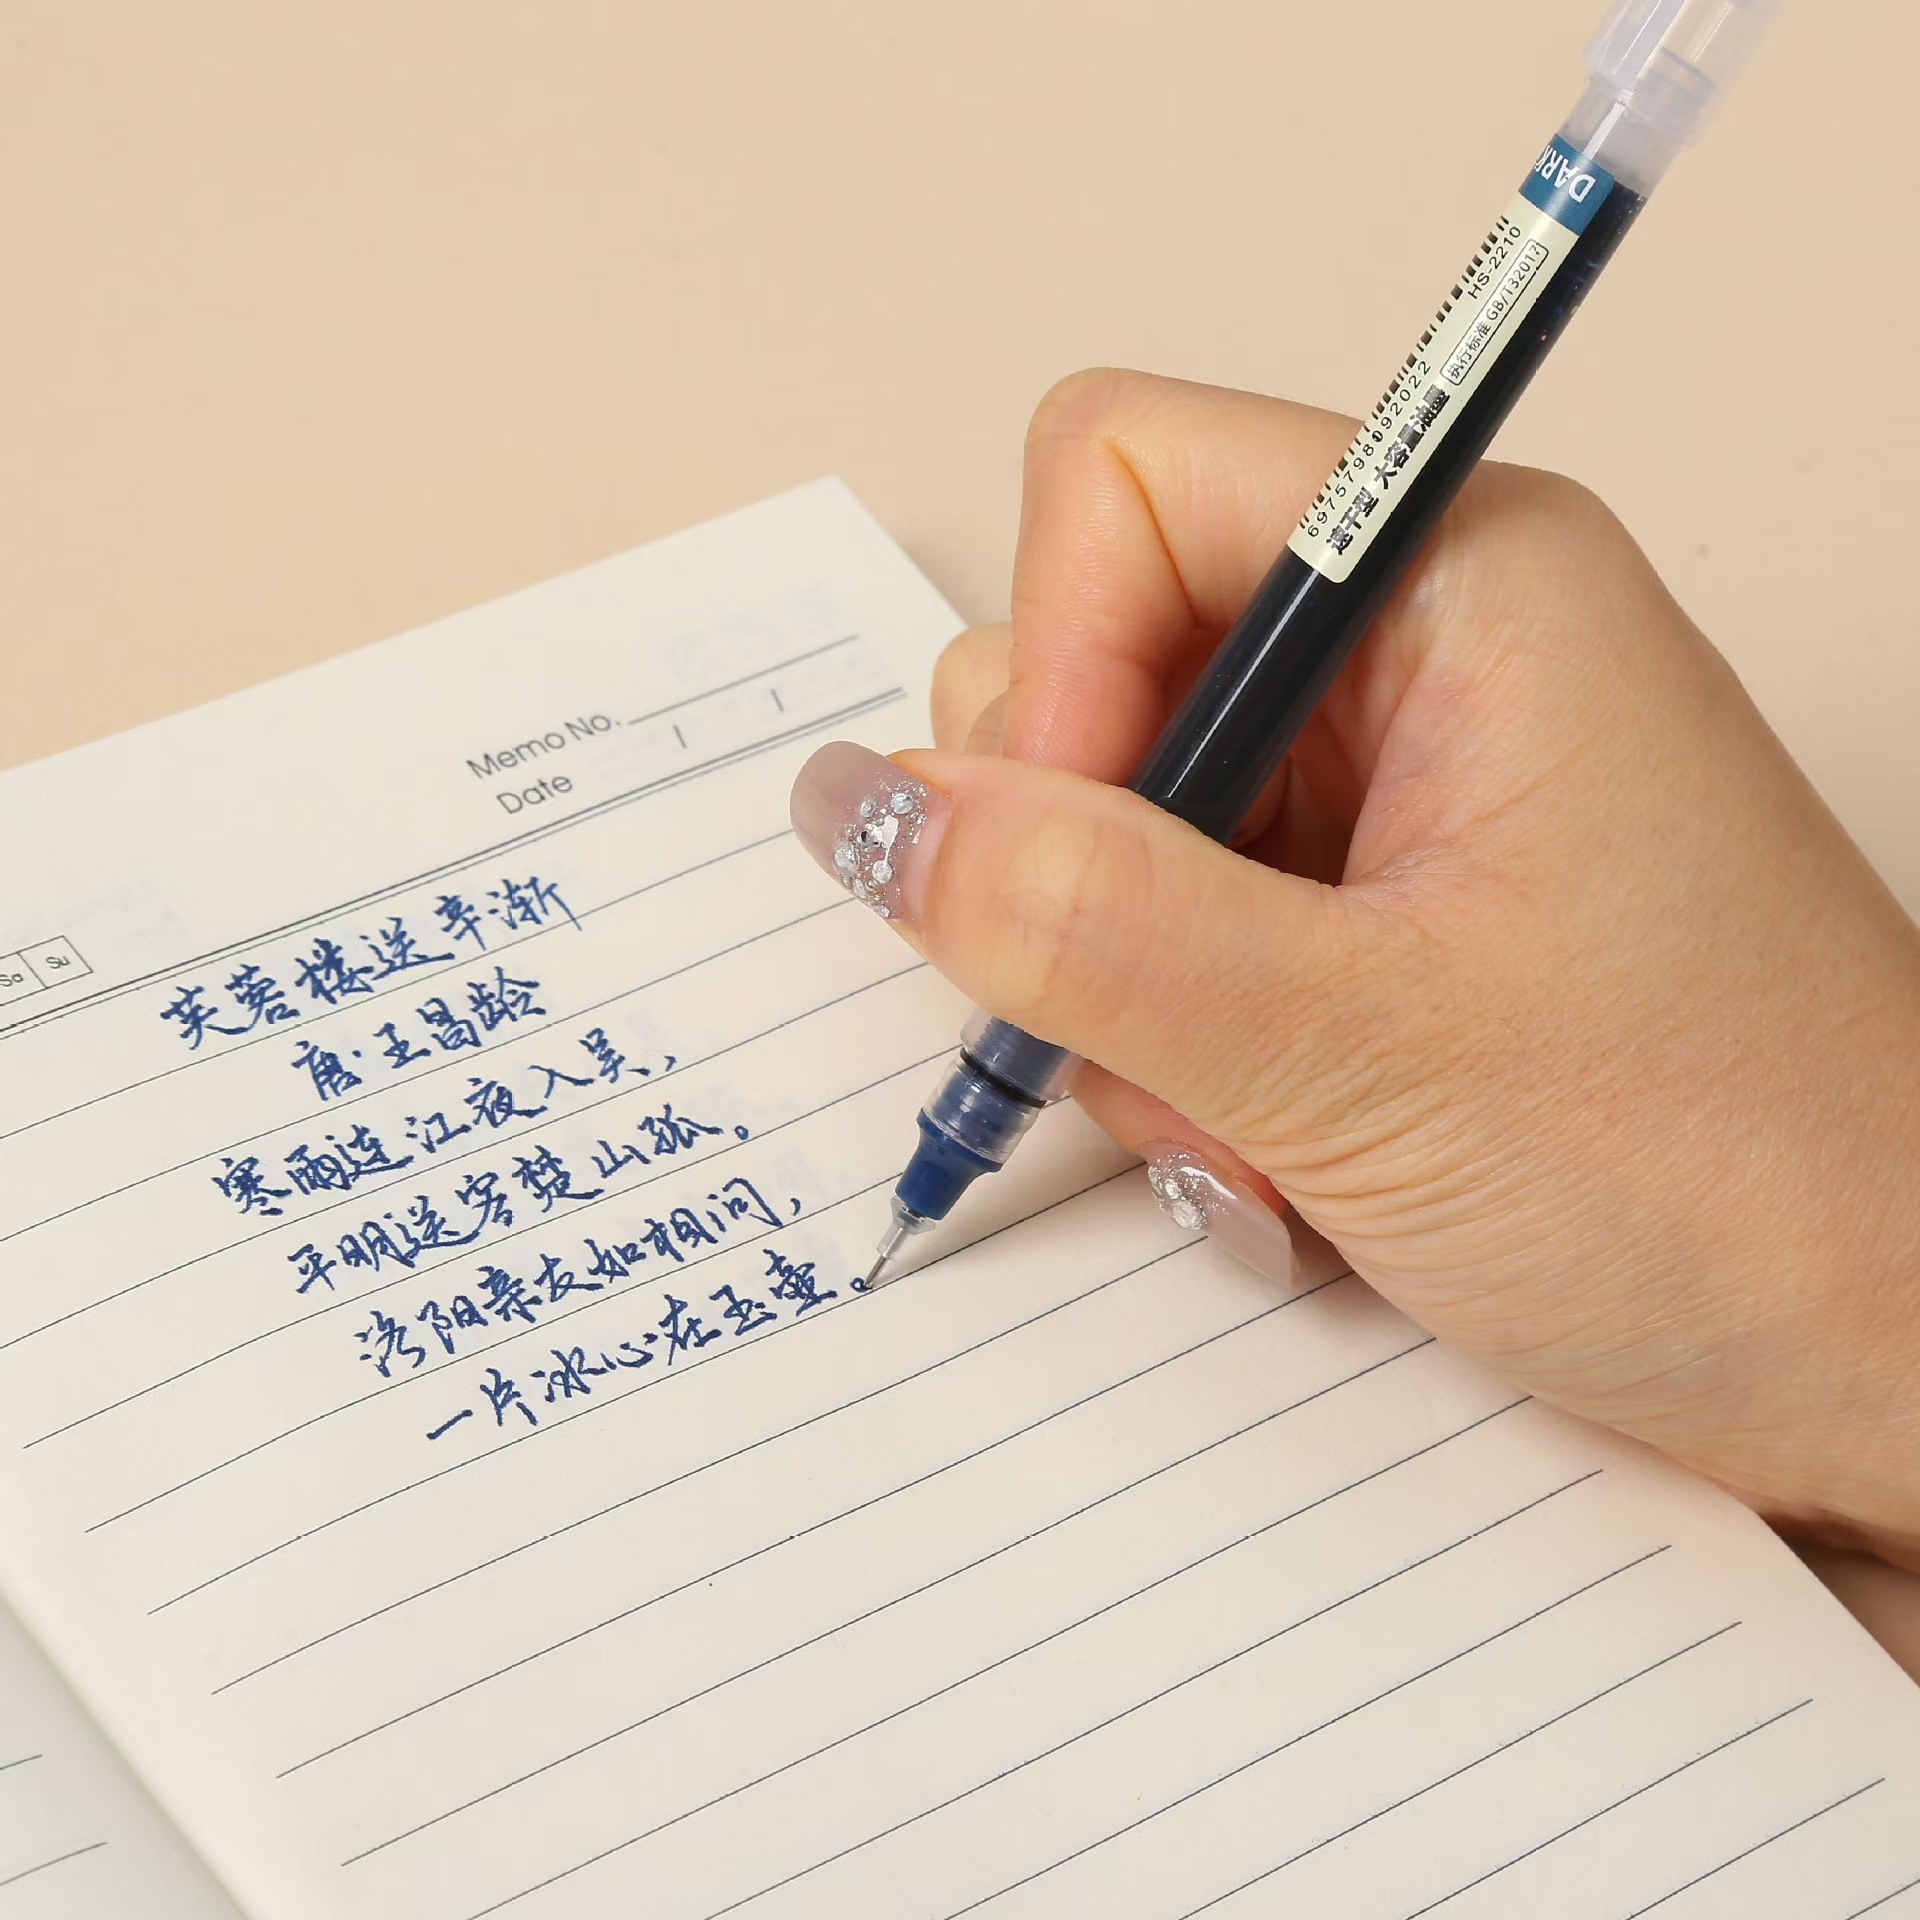 Memo No.
Date / /
Sa Su
芙蓉楼送辛渐
唐·王昌龄
寒雨连江夜入吴，
平明送客楚山孤。
洛阳亲友如相问，
一片冰心在玉壶。
DARK
HS-2210
执行标准 GB/T32017
6975798092022
速干型 大容量油墨